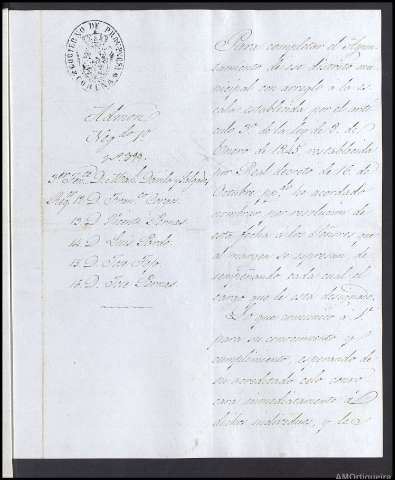 GOBIERNO DE PROVINCIA
CORUÑA
Admon
Neg.do 1º
nº 399.
3er Tente D. Man.l Davila y Salgado
Reg.r 12 D. Fran.co
13 D. Vicente Bermas
14 D. Luis Pardo
15 D. Jose Fojo
16 D. Jose Bermas
Para completar el Ayun-
tamiento de ese distrito mu-
nicipal con arreglo á la es-
cala establecida por el artí-
culo 3º de la ley de 8 de
Enero de 1845, restablecida
por Real decreto de 16 de
Octubre pp.do he acordado
nombrar por resolucion de
esta fecha á los Señores que
al margen se espresan de-
sempeñando cada cual el
cargo que le está designado.
Lo que comunico á V.
para su conocimiento y
cumplimiento, esperando de
su acreditado celo convo-
cará inmediatamente á
dichos individuos, y les
AMOrtigueira